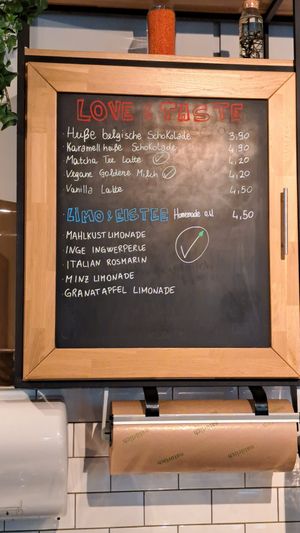 LOVE & TASTE
· Huße belgische Schokolade 3,90
· Karamell huße Schokolade 4,90
· Matcha Tee Latte 4,20
· Vegane Goldene Milch 4,20
· Vanilla Latte 4,50
LIMO & EISTEE Homemade 0,4l 4,50
· MAHLKUSTLIMONADE
· INGE INGWERPERLE
· ITALIAN ROSMARIN
· MINZ LIMONADE
· GRANATAPFEL LIMONADE
natürlich